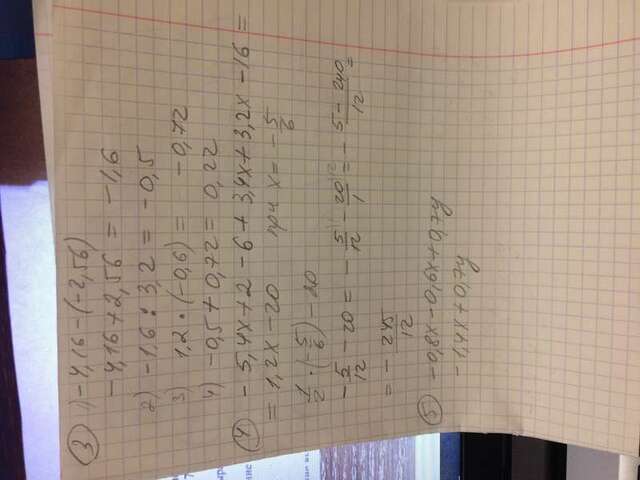 ③ 1) -4,16-(-2,56)
-4,16+2,56 = -1,6
2) -1,6 : 3,2 = -0,5
3) 1,2 · (-0,6) = -0,72
4) -0,5+0,72 = 0,22
④ -5,4x+2-6+3,4x+3,2x-16 =
= 1,2x-20 при x= -5/6
1/2 · (-5/6) - 20
-5/12 - 20 = - 5/12 - 20/1 = - 5-240/12 =
= - 245/12
⑤ -0,8x-0,6x+0,7y
-1,4x+0,7y